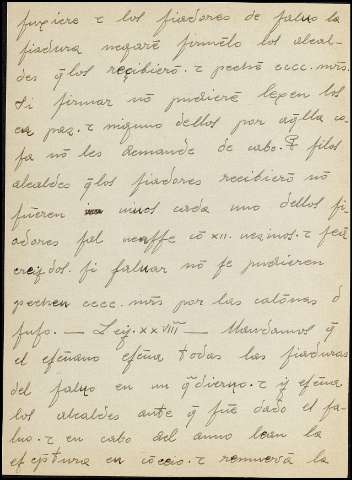 fuxiere τ los fiadores de faluo la
fiadura negarē firmēlo los alcal-
des q̄ los recibierō. τ pechē cccc. mr̄s.
Si firmar nō pudierē lexen los
en paz. τ ninguno dellos por aq̄lla co-
fa nō les demande de cabo. τ fi los
alcaldes q̄ los fiadores recibierō nō
fueren uiuos cada uno dellos fi-
adores fal cō xii. uezinos. τ feā
creýdos. fi faluar nō fe pudieren
pechen cccc. mr̄s por las calōnas d̄
fufo. — Ley. xxviii — Mandamos q̄
el efc̄uano efc̄ua todas las fiaduras
del faluo en un q̄dierno. τ q̄ efc̄ua
los alcaldes ante q̄ fue dado el fa-
luo. τ en cabo del anno lean la
efcptura en cōceio. τ renueuē la